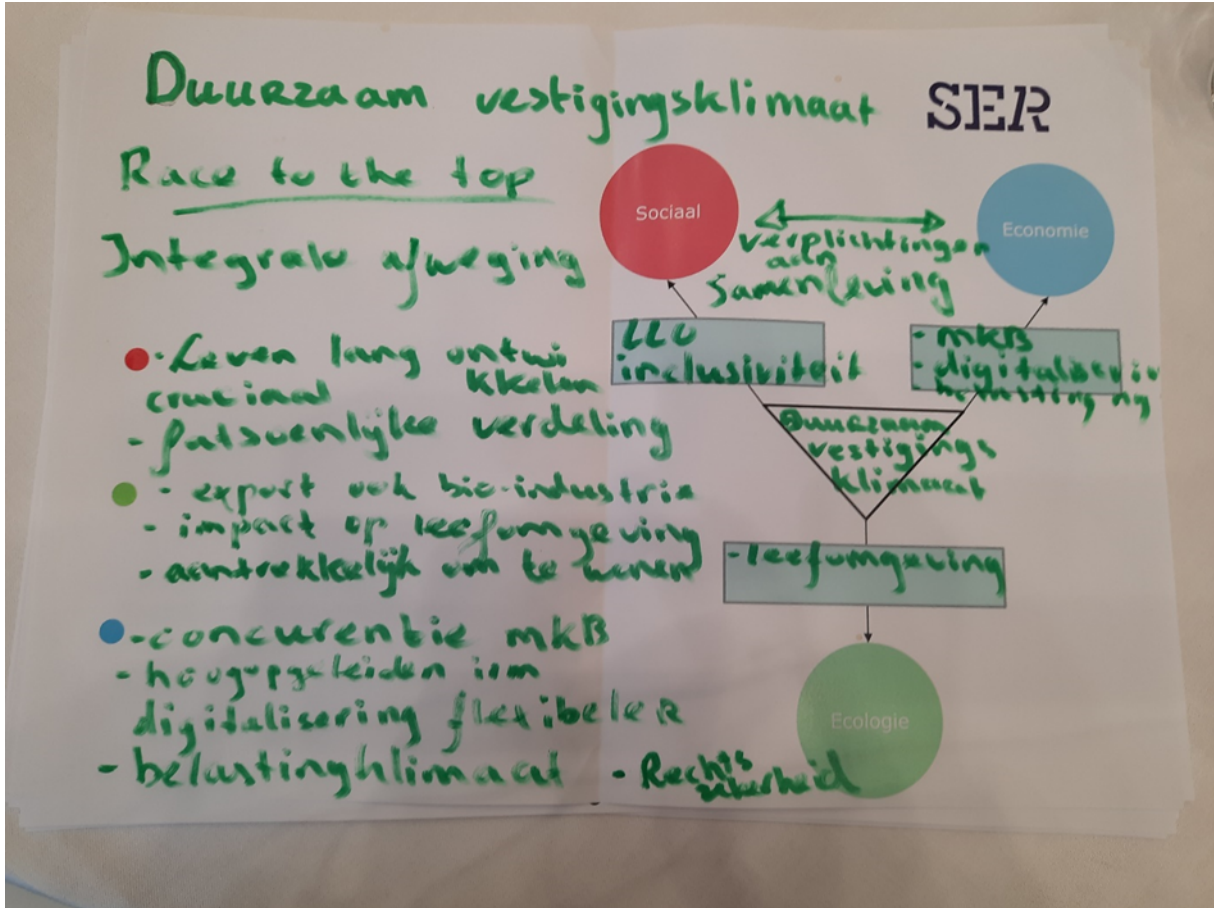 Duurzaam vestigingsklimaat
SER
Race to the top
Integrale afweging
- Leven lang ontwi
kkelen
cruciaal
- fatsoenlijke verdeling
- export ook bio-industrie
- impact op leefomgeving
- aantrekkelijk om te wonen
- concurentie mkB
- hoogopgeleiden ivm
digitalisering flexibeler
- belastingklimaat
- Rechts
zekerheid
Sociaal
Economie
verplichtingen
aan
Samenleving
LLO
inclusiviteit
- mkB
- digitaliserin
belasting ng
Duurzaam
vestigings
klimaat
- leefomgeving
Ecologie